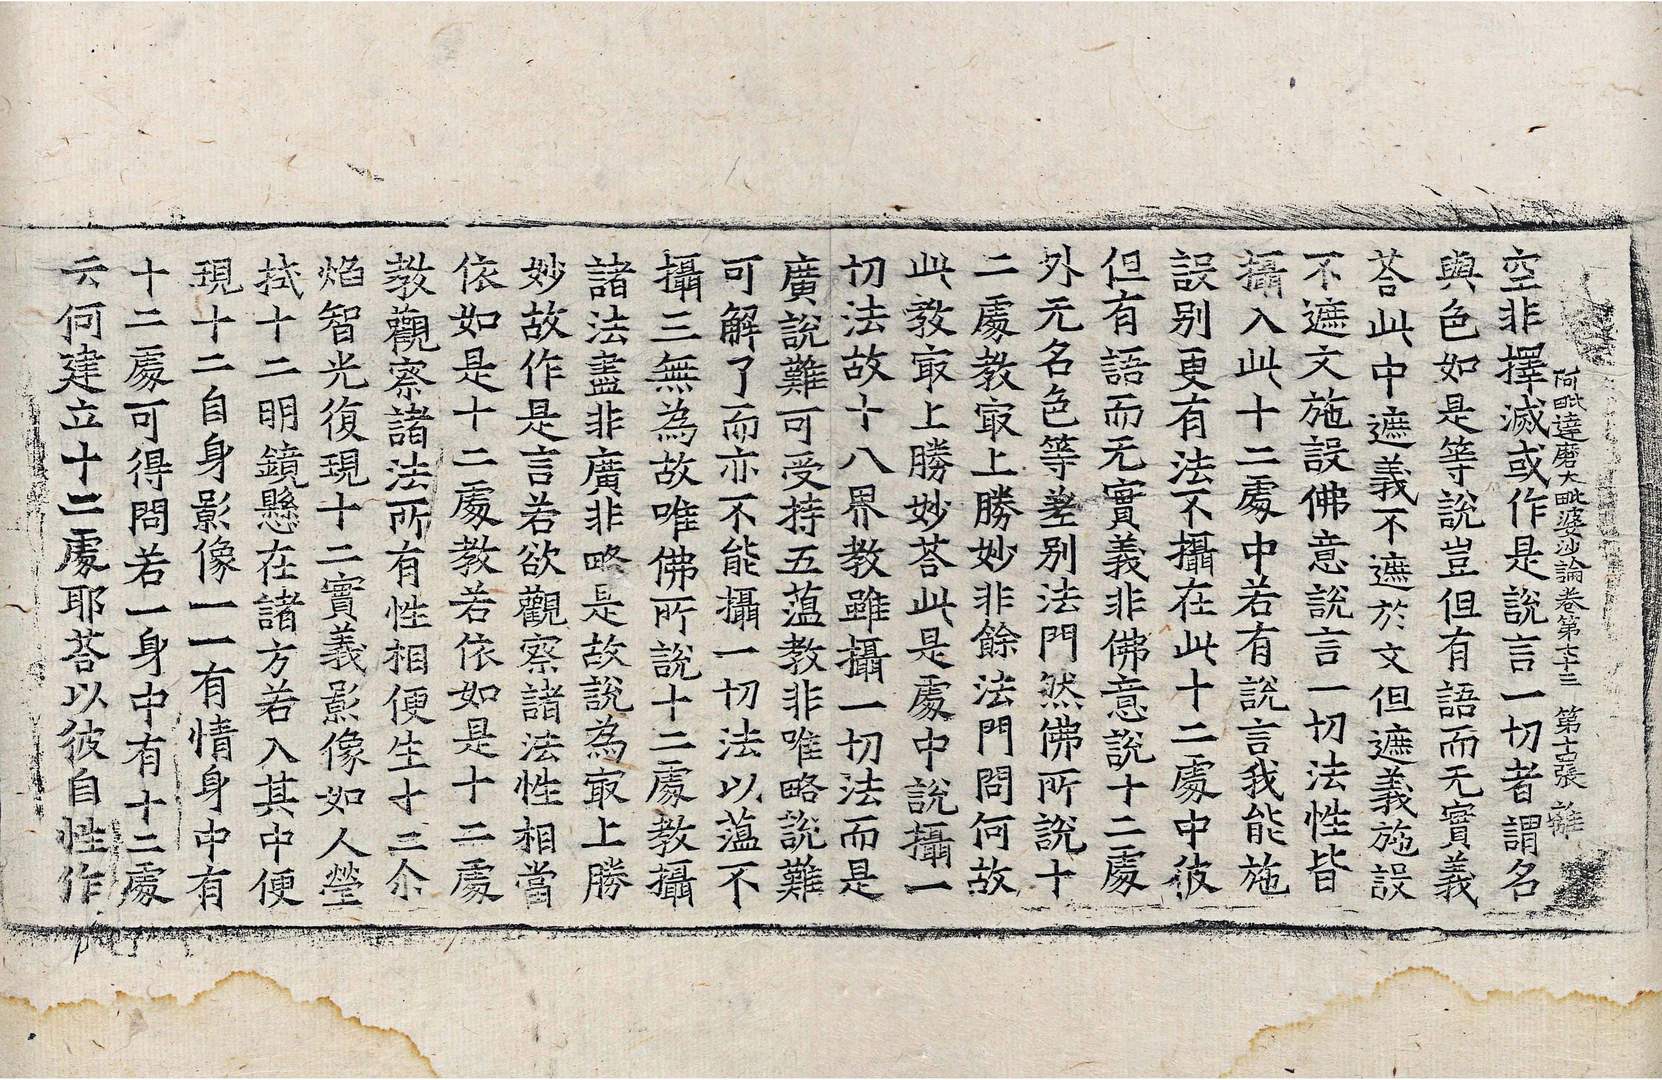 阿毗達磨大毗婆沙論卷第七十三 第 張
空非擇滅或作是說言一切者謂名
與色如是等說豈但有語而无實義
荅此中遮義不遮於文但遮義施設
不遮文施設佛意說言一切法性皆
攝入此十二處中若有說言我能施
設別更有法不攝在此十二處中彼
但有語而无實義非佛意說十二處
外无名色等差別法門然佛所說十
二處教㝡上勝妙非餘法門問何故
此教㝡上勝妙荅此是處中說攝一
切法故十八界教雖攝一切法而是
廣說難可受持五薀教非唯略說難
可解了而亦不能攝一切法以薀不
攝三無為故唯佛所說十二處教攝
諸法盡非廣非略是故說為㝡上勝
妙故作是言若欲觀察諸法性相當
依如是十二處教若依如是十二處
教觀察諸法所有性相便生十二尒
焰智光復現十二實義影像如人瑩
拭十二明鏡懸在諸方若入其中便
現十二自身影像一一有情身中有
十二處可得問若一身中有十二處
云何建立十二處耶荅以彼自性作